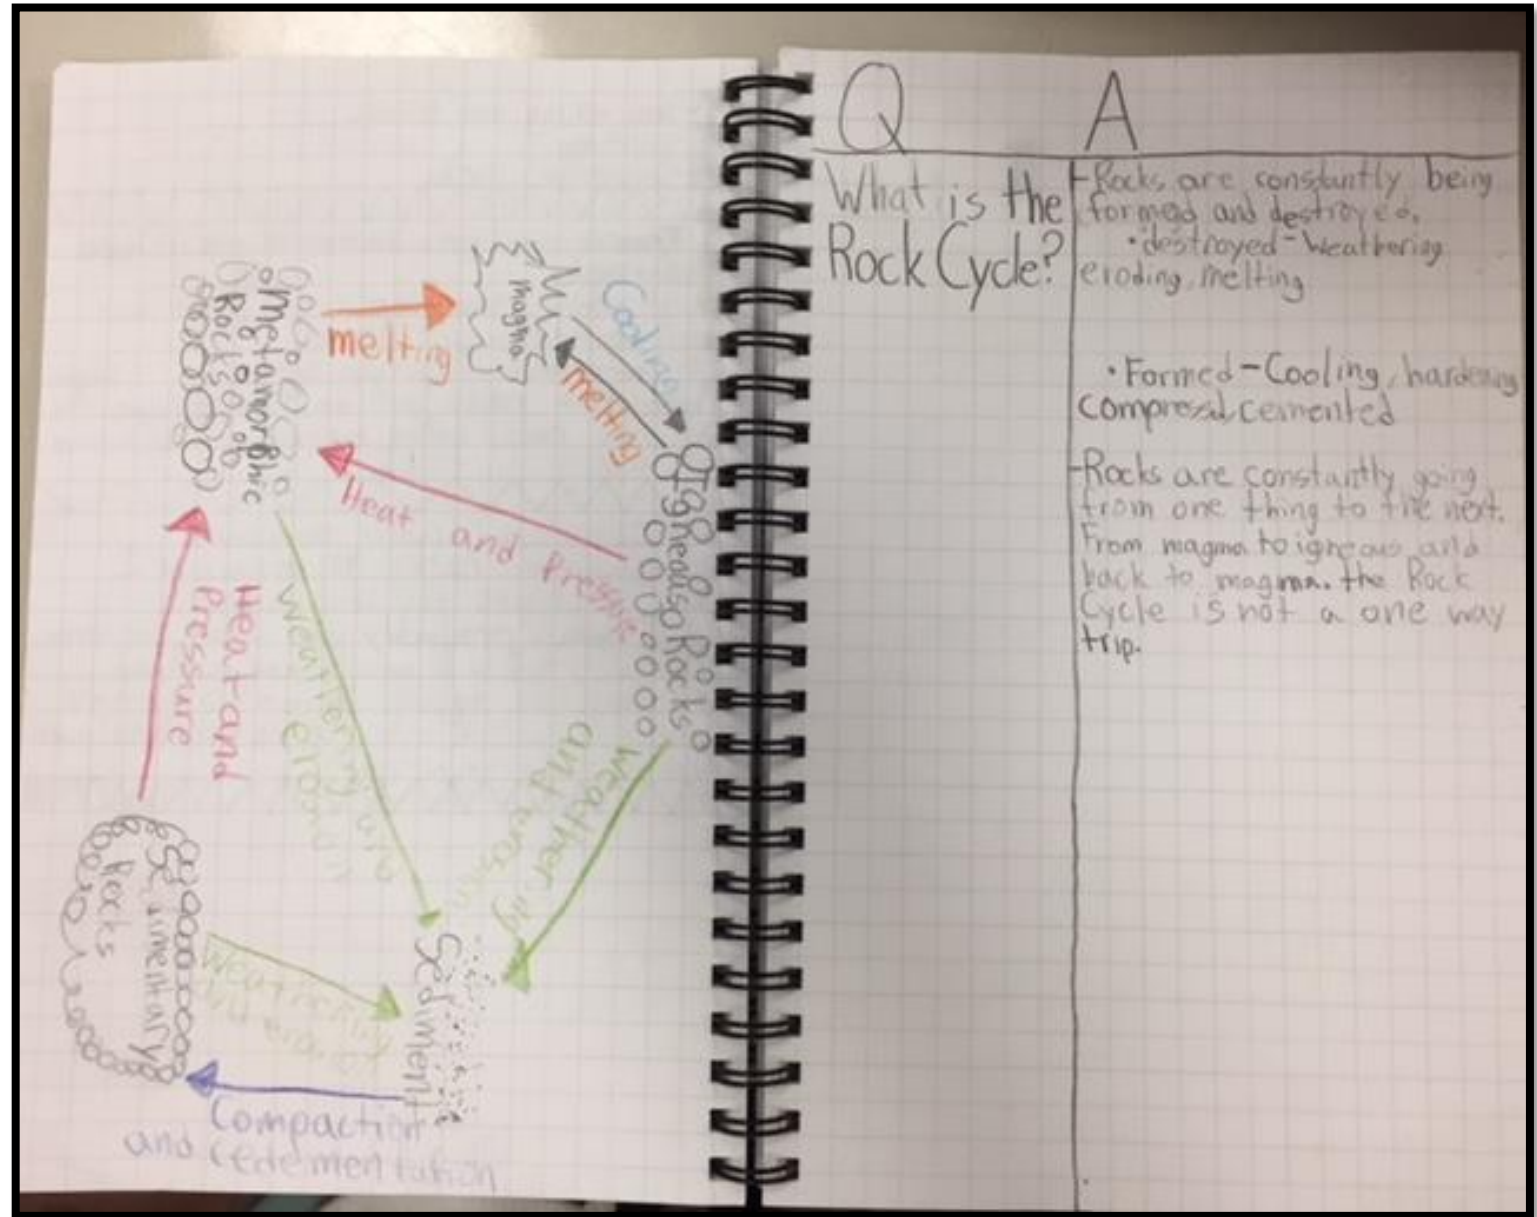 melting
magma
Cooling
melting
Metamorphic
Rocks
Heat and Pressure
Rocks
Heat and
Pressure
weathering and
erosion
weathering
and erosion
Rocks
Sediment
Compaction
and
Q
A
What is the
Rock Cycle?
-Rocks are constantly being
formed and destroyed.
•destroyed-Weathering
eroding, melting
•Formed-Cooling, hardening
compressed, cemented
-Rocks are constantly going
from one thing to the next.
From magma to igneous and
back to magma. the Rock
Cycle is not a one way
trip.